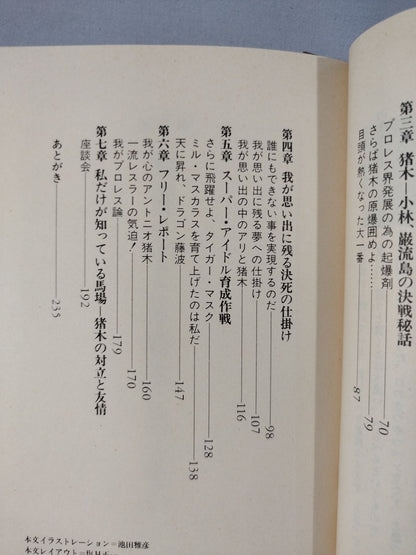 第三章 猪木―小林、巌流島の決戦秘話
プロレス界発展の為の起爆剤――70
さらば猪木の原爆囲めよ……――79
目頭が熱くなった大一番――87
第四章 我が思い出に残る決死の仕掛け
誰にもできない事を実現するのだ――98
我が思い出に残る夢への仕掛け――107
我が思い出の中のアリと猪木――116
第五章 スーパー・アイドル育成作戦
さらに飛躍せよ、タイガー・マスク――128
ミル・マスカラスを育て上げたのは私だ――138
天に昇れ、ドラゴン藤波――147
第六章 フリー・レポート
我が心のアントニオ猪木――160
一流レスラーの気迫！――170
我がプロレス論――179
第七章 私だけが知っている馬場―猪木の対立と友情
座談会――192
あとがき――233
本文イラストレーション＝池田雅彦
本文レイアウト＝